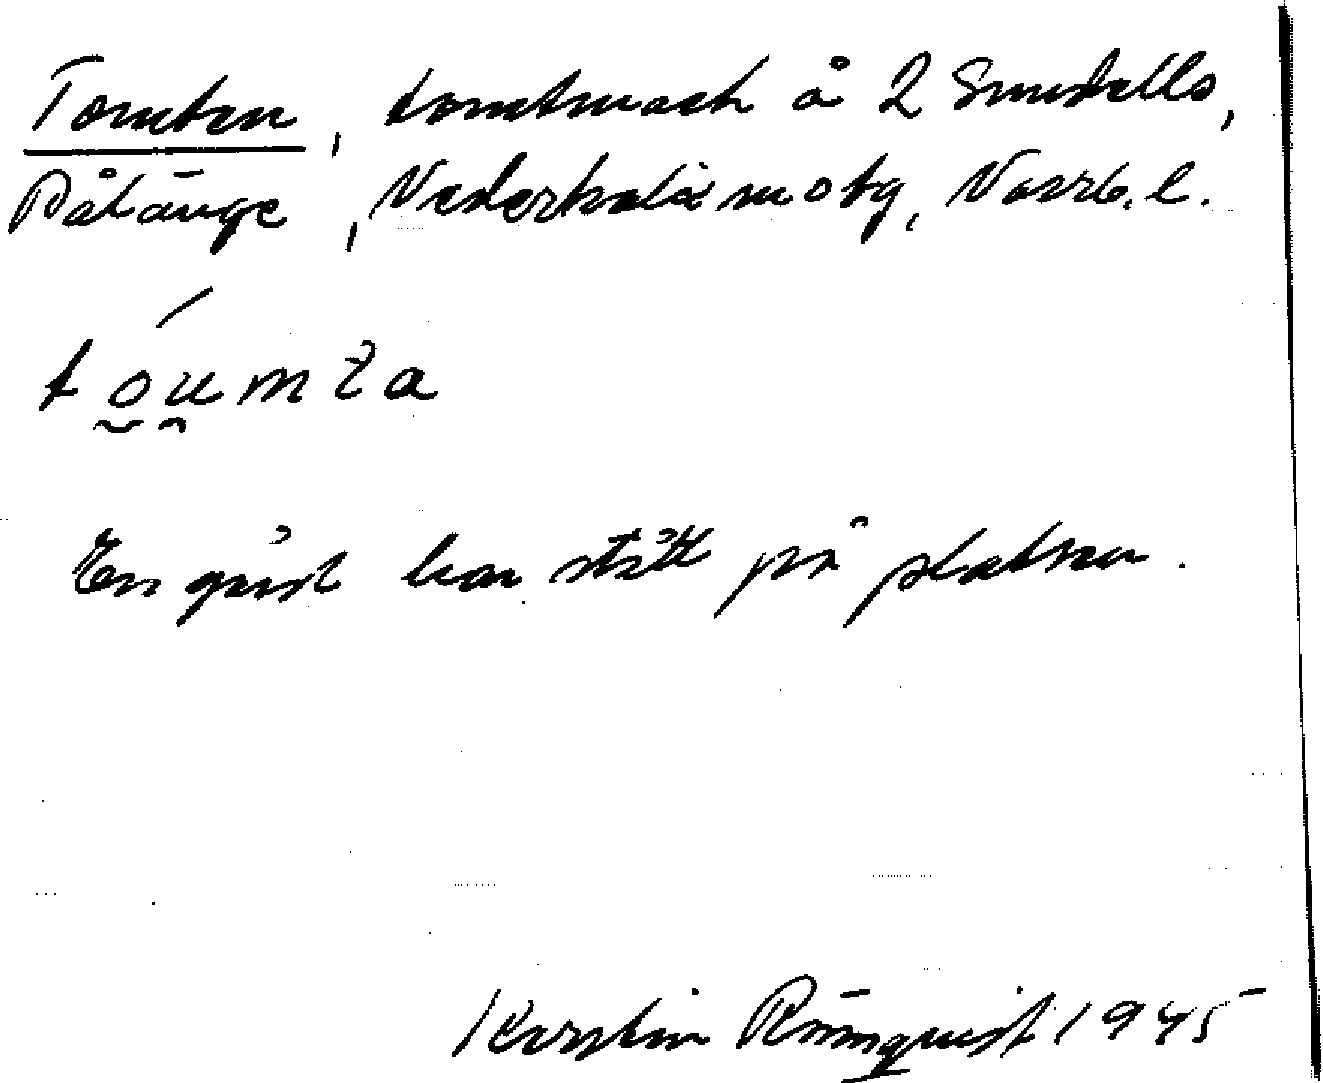 Tomten, tomtmark å 2 Sundells,
Pålänge, Nederkalix motg, Norrb. l.
tou̯mta
En gård har stått på platsen.
Kerstin Rönnquist 1945